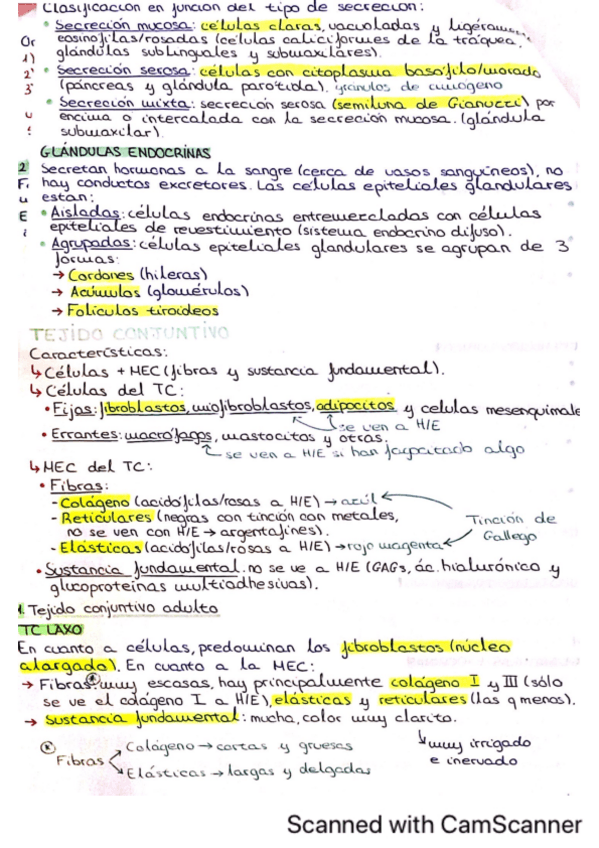 Clasificación en función del tipo de secreción:
• Secreción mucosa: células claras, vacuoladas y ligeram...
eosinofilas/rosadas (células caliciformes de la tráquea,
glándulas sublinguales y submaxilares).
• Secreción serosa: células con citoplasma basófilo/morado
(páncreas y glándula parotida). gránulos de cimógeno
• Secreción mixta: secreción serosa (semiluna de Gianuzzi) por
encima o intercalada con la secreción mucosa. (glándula
submaxilar).
GLÁNDULAS ENDOCRÍNAS
Secretan hormonas a la sangre (cerca de vasos sanguíneos), no
hay conductos excretores. Las células epiteliales glandulares
estan:
• Aisladas: células endocrinas entremezcladas con células
epiteliales de revestimiento (sistema endocrino difuso).
• Agrupadas: células epiteliales glandulares se agrupan de 3
formas:
→ Cordones (hileras)
→ Acúmulos (glomérulos)
→ Folículos tiroideos
TEJIDO CONJUNTIVO
Características:
↳ Células + MEC (fibras y sustancia fundamental).
↳ Células del TC:
• Fijas: fibroblastos, miofibroblastos, adipocitos y celulas mesenquimale
se ven a H/E
• Errantes: macrófagos, mastocitos y otras.
se ven a H/E si han fagocitado algo
↳ MEC del TC:
• Fibras:
- Colágeno (acidófilas/rosas a H/E) → azúl
- Reticulares (negras con tinción con metales,
no se ven con H/E → argentafines).
Tinción de
Gallego
- Elásticas (acidófilas/rosas a H/E) → rojo magenta
• Sustancia fundamental: no se ve a H/E (GAGs, ác. hialurónico y
glucoproteínas multiadhesivas).
1. Tejido conjuntivo adulto
TC LAXO
En cuanto a células, predominan los fibroblastos (núcleo
alargado). En cuanto a la MEC:
→ Fibras: muy escasas, hay principalmente colágeno I y III (sólo
se ve el colágeno I a H/E), elásticas y reticulares (las q menos).
→ Sustancia fundamental: mucha, color muy clarito.
muy irrigado
e inervado
Fibras
Colágeno → cortas y gruesas
Elásticas → largas y delgadas
Scanned with CamScanner